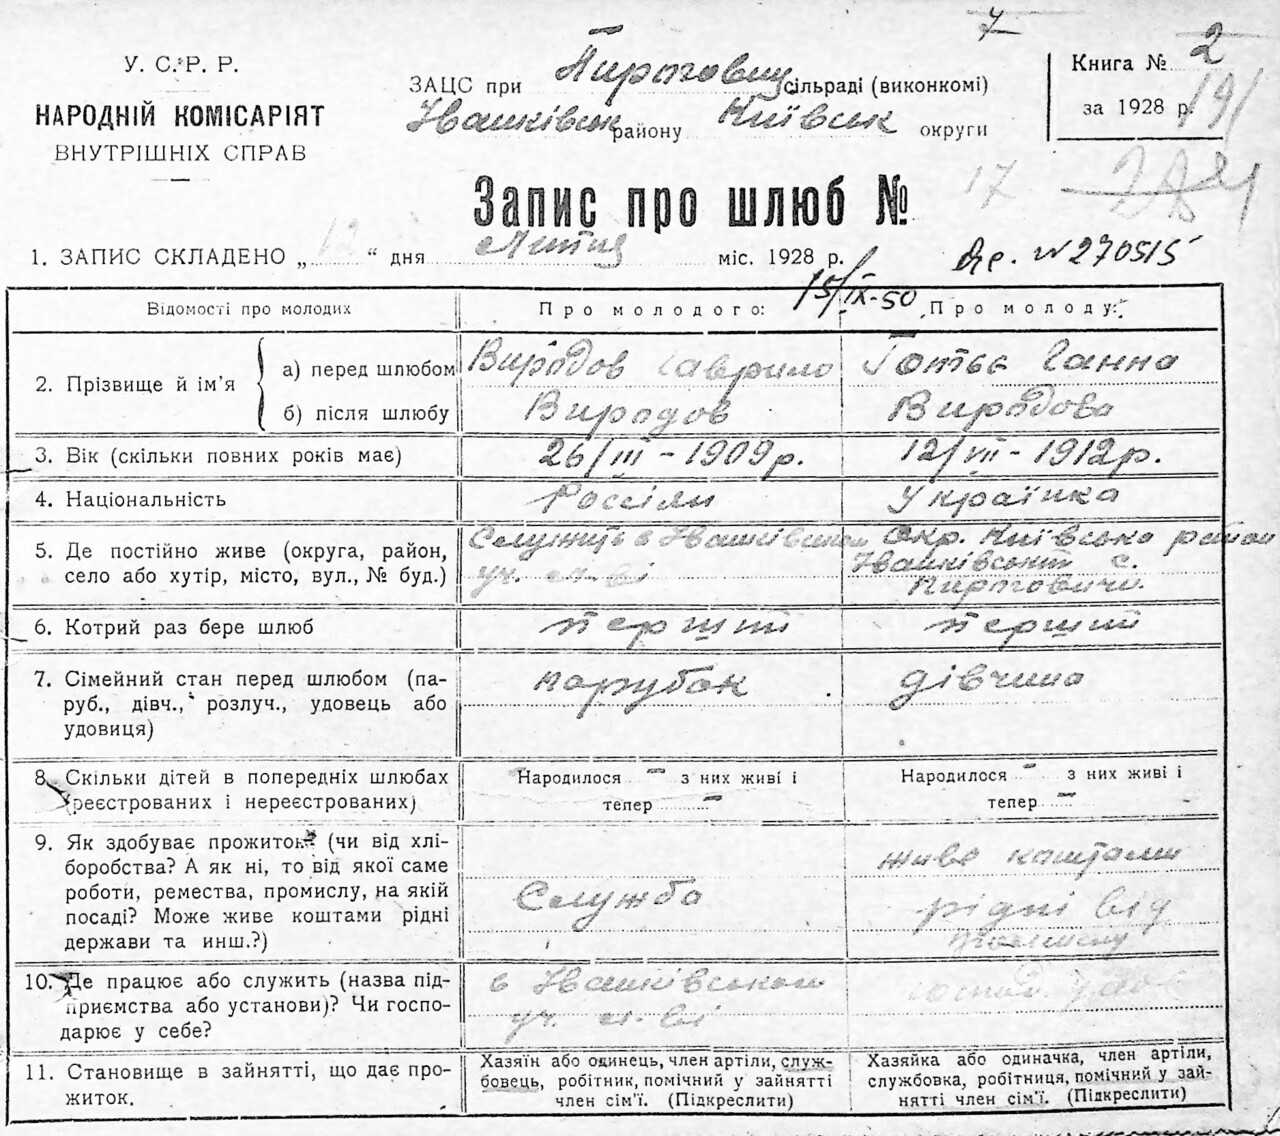 7
У. С. Р. Р.
НАРОДНІЙ КОМІСАРІЯТ
ВНУТРІШНІХ СПРАВ
ЗАЦС при Пироговиц сільраді (виконкомі)
Іванківськ району Київськ округи
Книга № 2
за 1928 р. 191
Запис про шлюб № 17
1. ЗАПИС СКЛАДЕНО „ 12 “ дня Лютня міс. 1928 р.
Др. N 270515
15/IX-50
Відомості про молодих Про молодого: Про молоду:
2. Прізвище й ім’я
а) перед шлюбом Виродов Гаврило Готьє Ганна
б) після шлюбу Виродов Виродова
3. Вік (скільки повних років має) 26/III - 1909 р. 12/VII - 1912 р.
4. Національність Россіян Українка
5. Де постійно живе (округа, район, село або хутір, місто, вул., № буд.)
Служить в Іванківськом
уч. м-ві
Окр. Київська район
Іванківський с.
Пироговичи.
6. Котрий раз бере шлюб перший перший
7. Сімейний стан перед шлюбом (па-
руб., дівч., розлуч., удовець або
удовиця)
парубок дівчина
8. Скільки дітей в попередніх шлюбах
(реєстрованих і нереєстрованих)
Народилося – з них живі і
тепер –
Народилося – з них живі і
тепер –
9. Як здобуває прожиток? (чи від хлі-
боробства? А як ні, то від якої саме
роботи, ремества, промислу, на якій
посаді? Може живе коштами рідні
держави та инш.?)
Служба
живе коштами
рідні від
10. Де працює або служить (назва під-
приємства або установи)? Чи госпо-
дарює у себе?
в Іванківськом
уч. м-ві
11. Становище в зайнятті, що дає про-
житок.
Хазяїн або одинець, член артіли, служ-
бовець, робітник, помічний у зайнятті
член сім’ї. (Підкреслити)
Хазяйка або одиначка, член артіли,
службовка, робітниця, помічний у зай-
нятті член сім’ї. (Підкреслити)